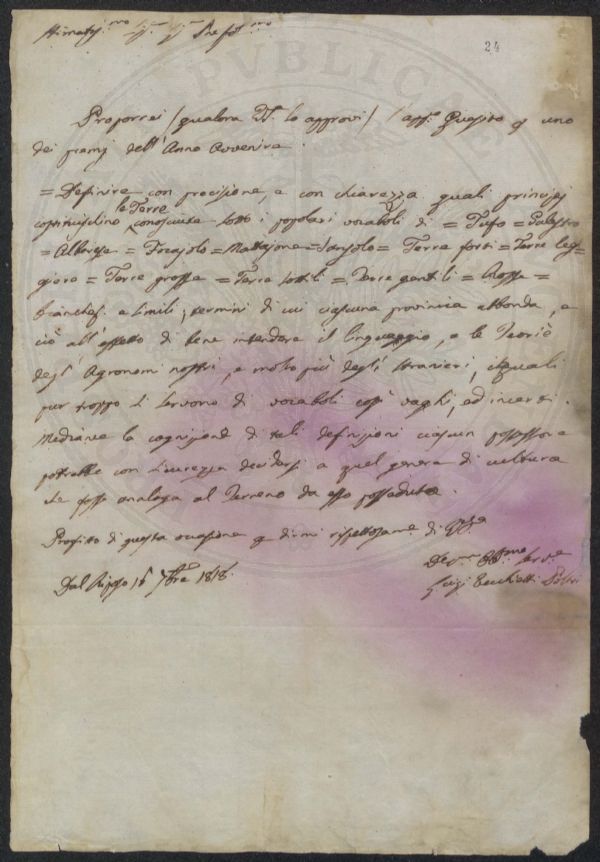 24
Proporrei (qualora Ella lo approvi) l'app. Quesito p uno
dei premj dell'Anno Avvenire.
= Definire con precisione, e con chiarezza quali principj
costituischino le Terre conosciute sotto i popolari vocaboli di = Tufo =
= Alberese = = Mattajone = = Terre forti = Terre leg=
giere = Terre grosse = Terre sottili = Terre gentili = Rosse =
bianche e simili, termini di cui ciascuna provincia abbonda, e
ciò all'effetto di bene intendere il linguaggio, e le Teorie
degl'Agronomi nostri, e molto più degl'stranieri, i quali
pur troppo si servono di vocaboli così vaghi, ed incerti.
Mediante la cognizione di tali definizioni ciascun possessore
potrebbe con sicurezza decidersi a quel genere di cultura
che fosse analoga al Terreno da esso posseduto.
Profitto di questa occasione p dirmi rispettosame. di
Dal 15 7bre 1818.
Luigi